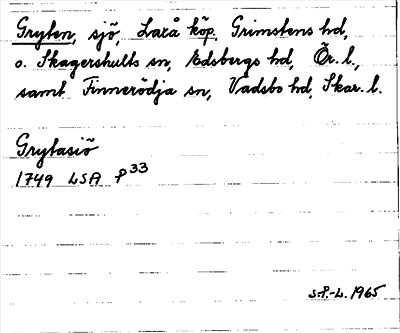 Gryten, sjö, Laxå köp. Grimstens hd,
o. Skagershults sn, Edsbergs hd, Ör. l.,
samt Finnerödja sn, Vadsbo hd, Skar. l.
Grytasiö
1749 LSA P33
S.P.-L. 1965